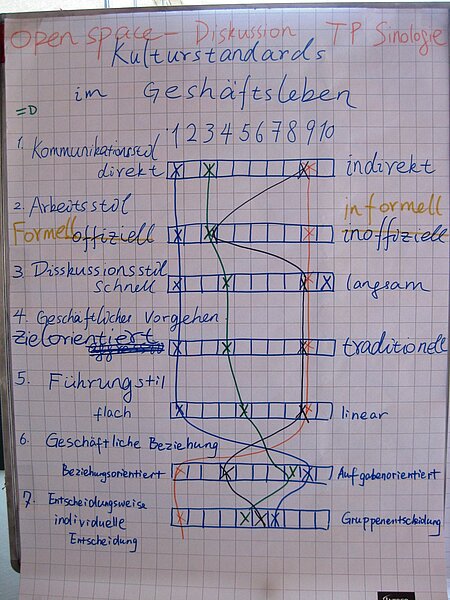 Open space - Diskussion TP Sinologie
Kulturstandards
im Geschäftsleben
=D
1 2 3 4 5 6 7 8 9 10
1. Kommunikationsstil
direkt indirekt
2. Arbeitsstil informell
Formell offiziell inoffiziell
3. Disskussionsstil
schnell langsam
4. Geschäftliches Vorgehen
zielorientiert traditionell
5. Führungstil
flach linear
6. Geschäftliche Beziehung
Beziehungsorientiert Aufgabenorientiert
7. Entscheidungsweise
individuelle Gruppenentscheidung
Entscheidung